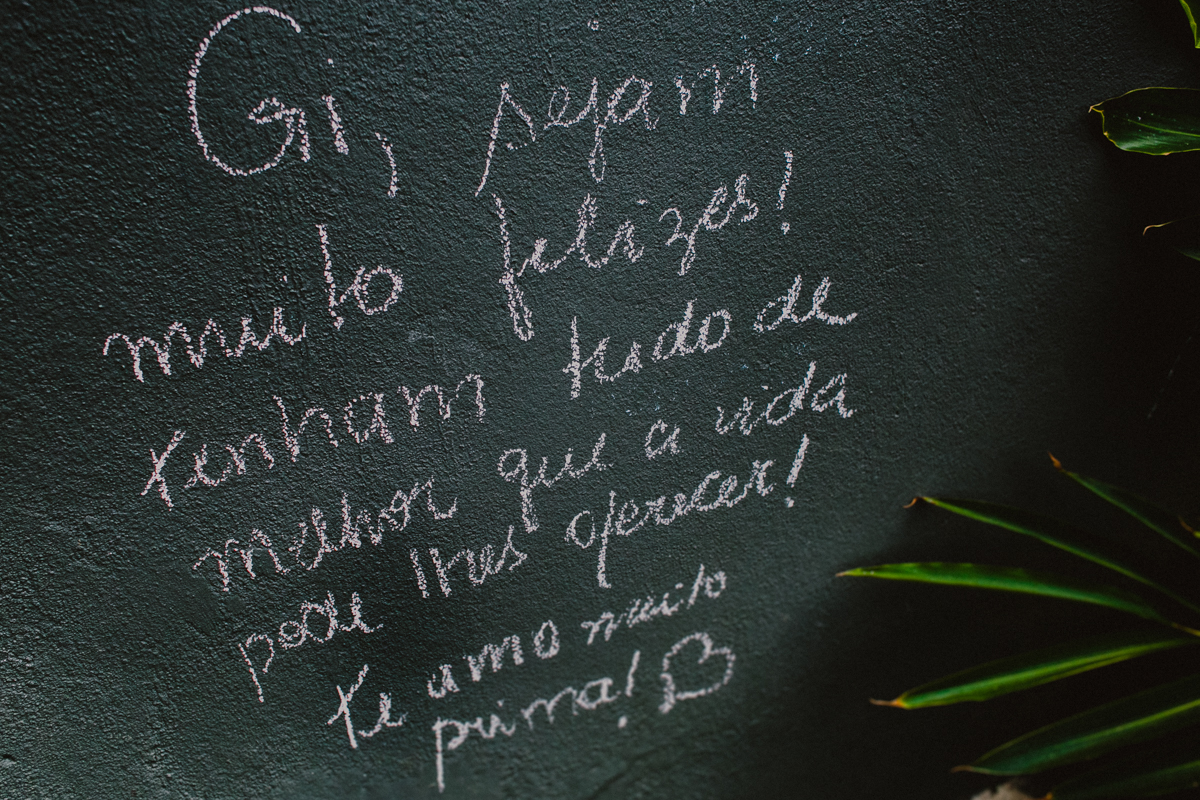 Gi, sejam
muito felizes!
tenham tudo de
melhor que a vida
pode lhes oferecer!
te amo muito
prima! ♡